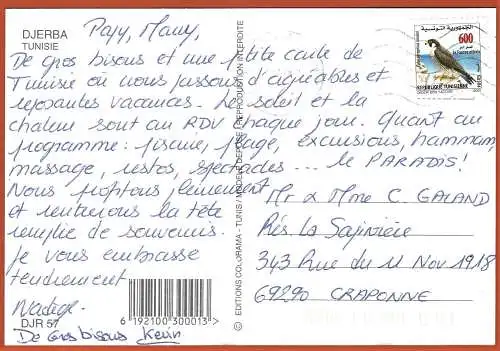 DJERBA
TUNISIE
Papy, Mamy,
De gros bisous et une petite carte de
Tunisie où nous passons d'agréables et
reposantes vacances. Le soleil et la
chaleur sont au RDV chaque jour. Quant au
programme : piscine, plage, excursions, hammam,
massage, restos, spectacles... le PARADIS!
Nous profitons pleinement
et rentrerons la tête
remplie de souvenirs.
Je vous embrasse
tendrement
Nadège
DJR 57
De Gros bisous Kevin
6 192100 300013 >
© EDITIONS COLORAMA - TUNIS / MODELE DEPOSE / REPRODUCTION INTERDITE
الجمهورية التونسية
600
REPUBLIQUE TUNISIENNE
Mr & Mme C. GALAND
Rés La Sapinière
343 Rue du 11 Nov 1918
69290 CRAPONNE